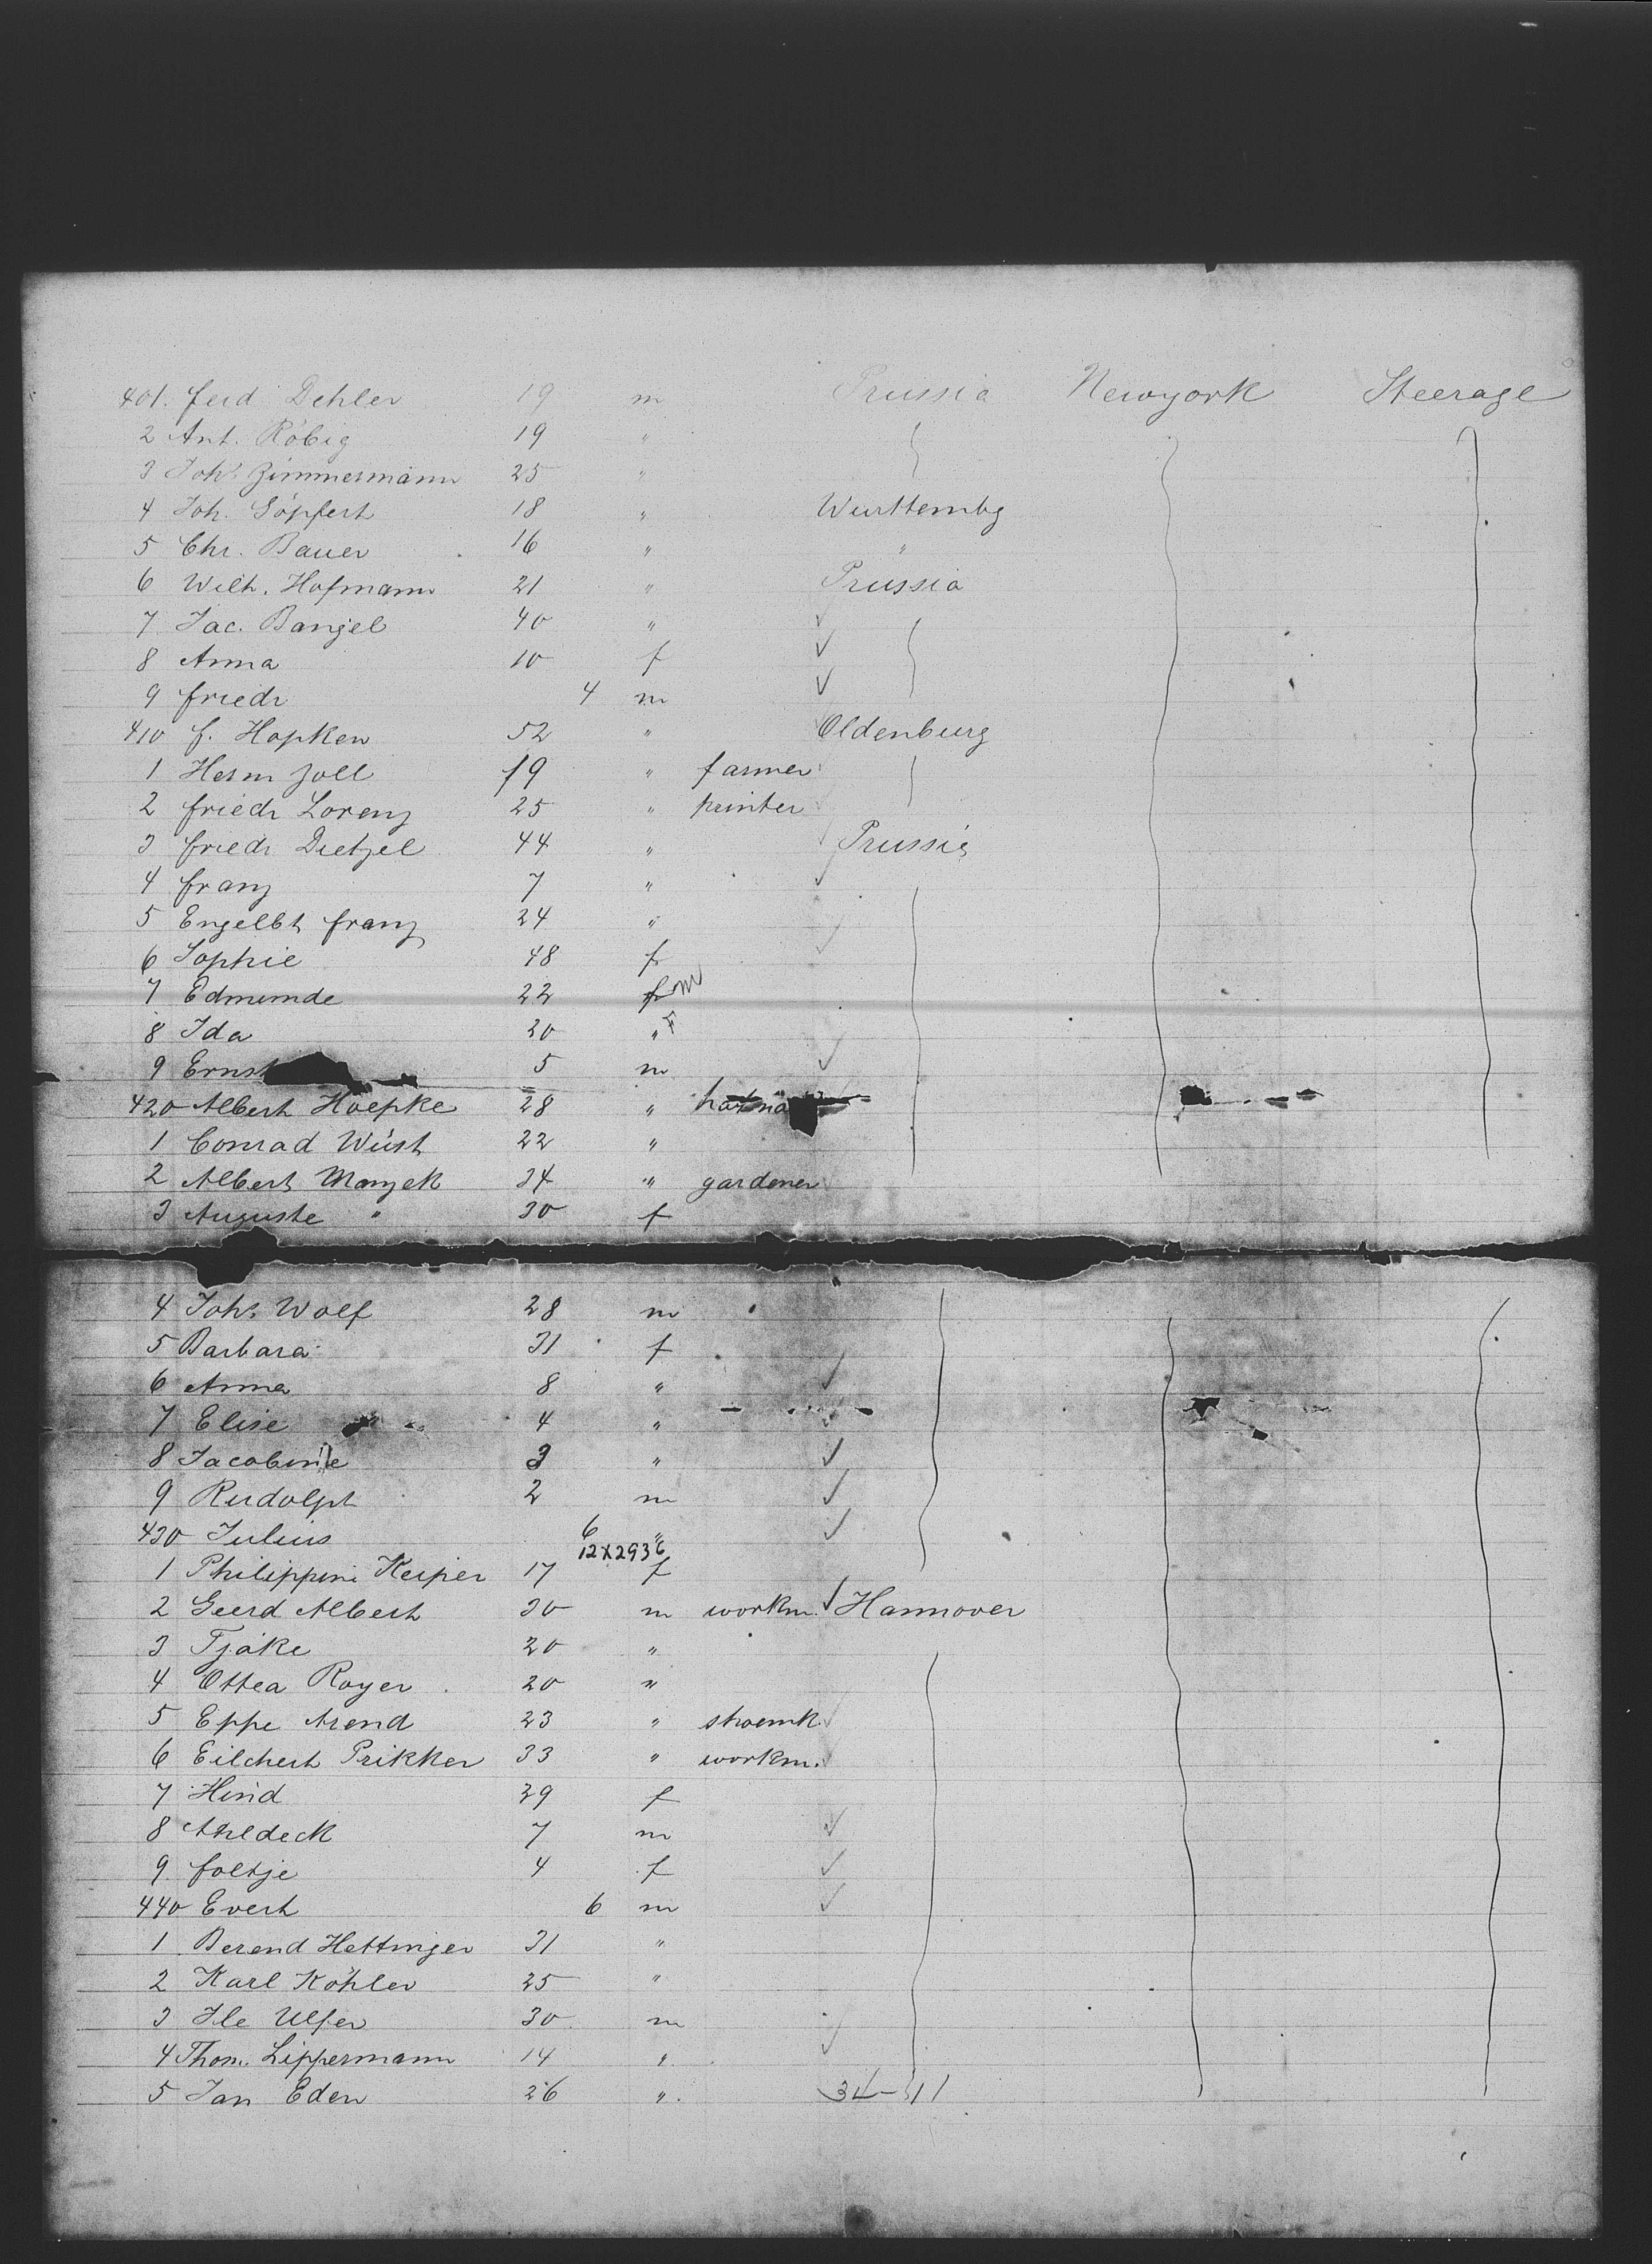 401. Ferd Dehler 19 m Prussia Newyork Steerage
2 Ant. Röbig 19 "
3 Johs Zimmermann 25 "
4 Joh. Göpfert 18 " Wurttembg
5 Chr. Bauer 16 " "
6 Wilh. Hofmann 21 " Prussia
7 Jac. Bangel 40 "
8 Anna 10 f
9 Friedr 4 m
410 F. Hopken 52 " Oldenburg
1 Herm Zoll 19 " farmer
2 Friedr Lorenz 25 " printer
3 Friedr Dietzel 44 " Prussia
4 Franz 7 "
5 Engelbt Franz 24 "
6 Sophie 48 f
7 Edmunde 22 f m
8 Ida 20 " F
9 Ernst 5 m
420 Albert Hoepke 28 "
1 Conrad Wüst 22 "
2 Albert Manzek 34 " gardener
3 Auguste " 30 f
4 Johs Wolf 28 m
5 Barbara 31 f
6 Anna 8 "
7 Elise 4 "
8 Jacobine 3 "
9 Rudolph 2 m
430 Julius 6 "
12X2936
1 Philippine Keiper 17 f
2 Geerd Albert 30 m workm. Hannover
3 Tjake 20 "
4 Ottea Royer 20 "
5 Eppe Arend 23 " shoemk.
6 Eilchert Prikker 33 " workm.
7 Hind 29 f
8 Ahldeck 7 m
9 Foltje 4 f
440 Evert 6 m
1 Berend Hettinger 31 "
2 Karl Köhler 25 "
3 Ile Ulfer 30 m
4 Thom. Lippermann 14 "
5 Jan Eden 26 " 34-11